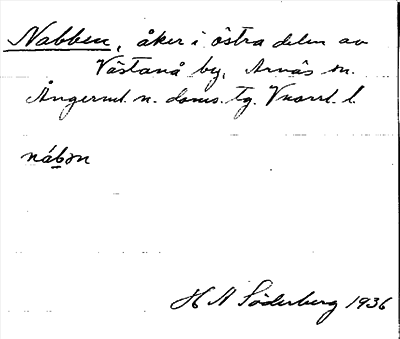 Nabben, åker i östra delen av
Västanå by, Arnäs sn.
Ångerml. n. doms. tg. Vnorrl. l.
nábən
H A Söderberg 1936